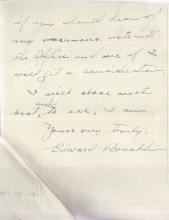 if you should hear of
any vacancies,
the office and see if I
will get a consideration.
I will close with
best to all, I am.
Yours very truly,
Edward